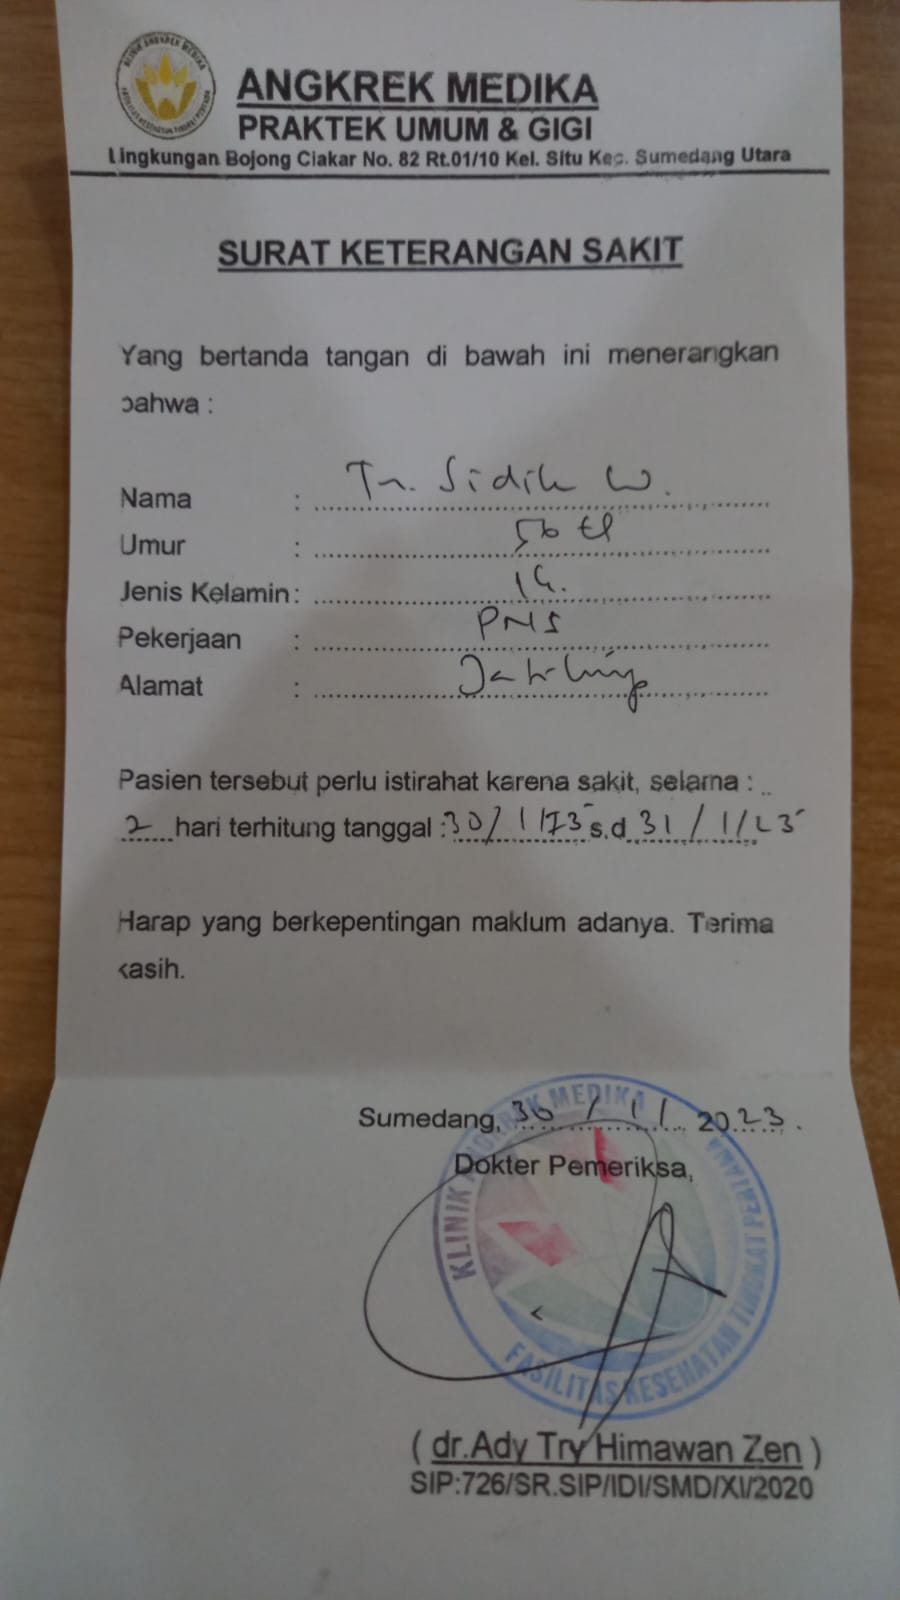 KLINIK ANGKREK MEDIKA
FASILITAS KESEHATAN TINGKAT PERTAMA
ANGKREK MEDIKA
PRAKTEK UMUM & GIGI
Lingkungan Bojong Ciakar No. 82 Rt.01/10 Kel. Situ Kec. Sumedang Utara
SURAT KETERANGAN SAKIT
Yang bertanda tangan di bawah ini menerangkan
bahwa :
Nama : Tn. Sidik W.
Umur : 56 th
Jenis Kelamin :
Pekerjaan : PNS
Alamat :
Pasien tersebut perlu istirahat karena sakit, selama :
2 hari terhitung tanggal : 30/1/23 s.d 31/1/23
Harap yang berkepentingan maklum adanya. Terima
kasih.
Sumedang, 30/1/2023.
Dokter Pemeriksa,
KLINIK ANGKREK MEDIKA
FASILITAS KESEHATAN TINGKAT PERTAMA
( dr.Ady Try Himawan Zen )
SIP:726/SR.SIP/IDI/SMD/XI/2020